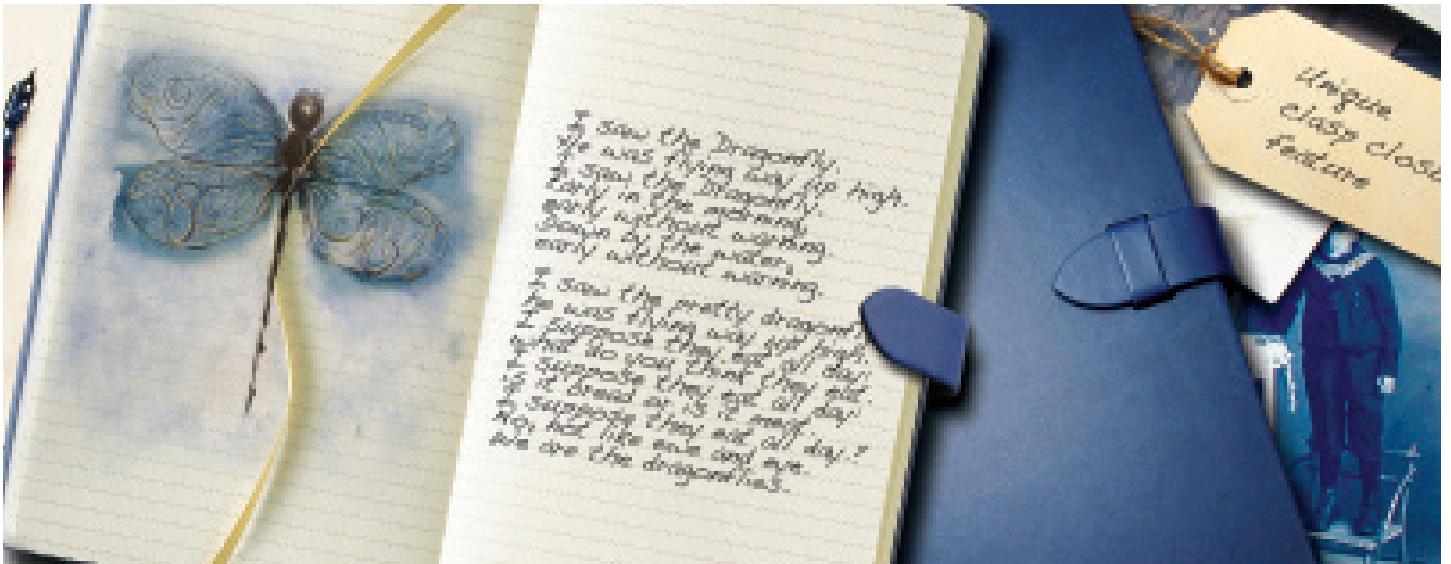 I saw the Dragonfly.
He was flying way up high.
I saw the Dragonfly.
Early in the morning
early without warning.
Down by the water,
early without warning.
I saw the pretty dragonfly
he was flying way up high.
I suppose they eat all day.
What do you think they eat.
I suppose they eat all day
is it bread or is it meat.
I suppose they eat all day!
No, not like ewe and eye.
We are the dragonflies.
Unique
clasp close
feature